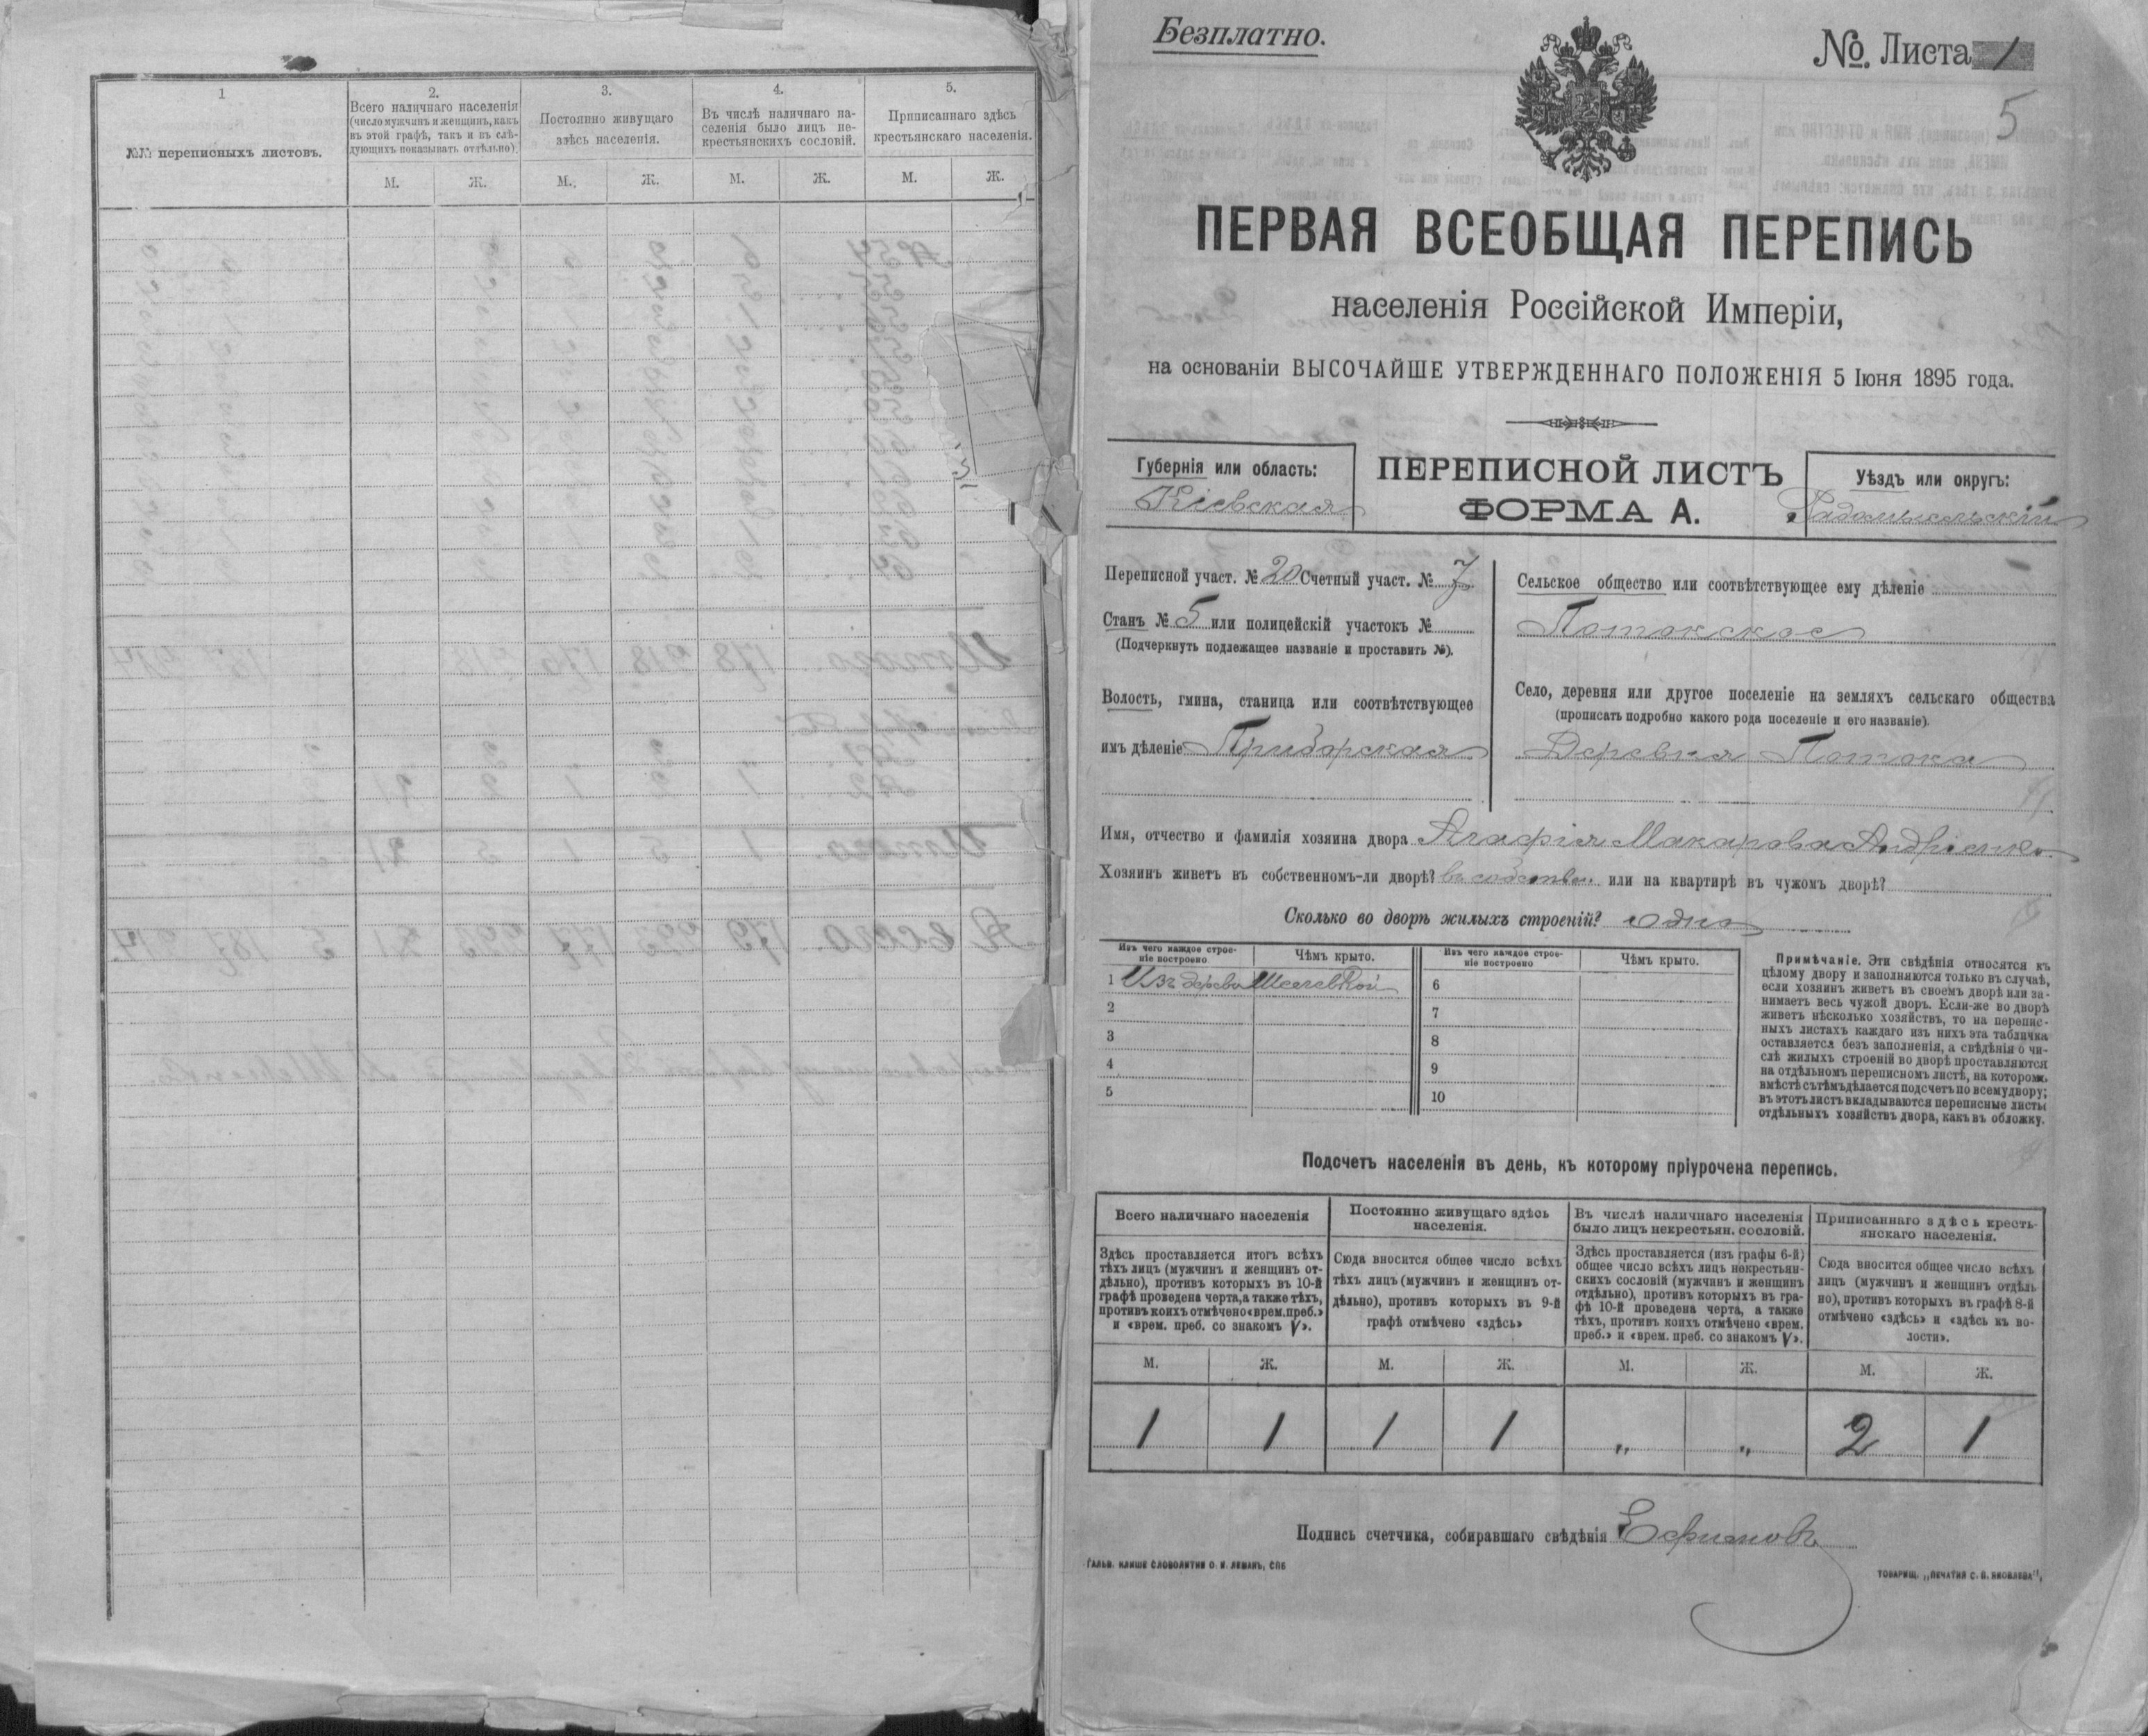 1
№№ переписныхъ листовъ.
2.
Всего наличнаго населенія
(число мужчинъ и женщинъ, какъ
въ этой графѣ, такъ и въ слѣ-
дующихъ показывать отдѣльно).
3.
Постоянно живущаго
здѣсь населенія.
4.
Въ числѣ наличнаго на-
селенія было лицъ не-
крестьянскихъ сословій.
5.
Приписаннаго здѣсь
крестьянскаго населенія.
М. Ж. М. Ж. М. Ж. М. Ж.
Безплатно.
№ Листа 1
5
ПЕРВАЯ ВСЕОБЩАЯ ПЕРЕПИСЬ
населенія Россійской Имперіи,
на основаніи ВЫСОЧАЙШЕ УТВЕРЖДЕННАГО ПОЛОЖЕНІЯ 5 Іюня 1895 года.
Губернія или область:
Кіевская
ПЕРЕПИСНОЙ ЛИСТЪ
ФОРМА А.
Уѣздъ или округъ:
Радомысльскій
Переписной участ. № 20 Счетный участ. № 7
Станъ № 5 или полицейскій участокъ №
(Подчеркнуть подлежащее названіе и проставить №).
Волость, гмина, станица или соотвѣтствующее
имъ дѣленіе Приборская
Сельское общество или соотвѣтствующее ему дѣленіе
Потокское
Село, деревня или другое поселеніе на земляхъ сельскаго общества
(прописать подробно какого рода поселеніе и его названіе).
Деревня Потоки
Имя, отчество и фамилія хозяина двора Агафія Макарова Андріенко
Хозяинъ живетъ въ собственномъ-ли дворѣ? въ собствен. или на квартирѣ въ чужомъ дворѣ?
Сколько во дворѣ жилыхъ строеній? одно
Изъ чего каждое строе-
ніе построено
Чѣмъ крыто.
Изъ чего каждое строе-
ніе построено
Чѣмъ крыто.
1 Изъ дерева 6
2 7
3 8
4 9
5 10
Примѣчаніе. Эти свѣдѣнія относятся къ
цѣлому двору и заполняются только въ случаѣ,
если хозяинъ живетъ въ своемъ дворѣ или за-
нимаетъ весь чужой дворъ. Если-же во дворѣ
живетъ нѣсколько хозяйствъ, то на перепис-
ныхъ листахъ каждаго изъ нихъ эта табличка
оставляется безъ заполненія, а свѣдѣнія о чи-
слѣ жилыхъ строеній во дворѣ проставляются
на отдѣльномъ переписномъ листѣ, на которомъ
вмѣстѣ съ тѣмъ дѣлается подсчетъ по всему двору;
въ этотъ листъ вкладываются переписные листы
отдѣльныхъ хозяйствъ двора, какъ въ обложку.
Подсчетъ населенія въ день, къ которому пріурочена перепись.
Всего наличнаго населенія
Здѣсь проставляется итогъ всѣхъ
тѣхъ лицъ (мужчинъ и женщинъ от-
дѣльно), противъ которыхъ въ 10-й
графѣ проведена черта, а также тѣхъ,
противъ коихъ отмѣчено «врем. преб.»
и «врем. преб. со знакомъ V».
Постоянно живущаго здѣсь
населенія.
Сюда вносится общее число всѣхъ
тѣхъ лицъ (мужчинъ и женщинъ от-
дѣльно), противъ которыхъ въ 9-й
графѣ отмѣчено «здѣсь»
Въ числѣ наличнаго населенія
было лицъ некрестьян. сословій.
Здѣсь проставляется (изъ графы 6-й)
общее число всѣхъ лицъ некрестьян-
скихъ сословій (мужчинъ и женщинъ
отдѣльно), противъ которыхъ въ гра-
фѣ 10-й проведена черта, а также
тѣхъ, противъ коихъ отмѣчено «врем.
преб.» и «врем. преб. со знакомъ V».
Приписаннаго здѣсь кресть-
янскаго населенія.
Сюда вносится общее число всѣхъ
лицъ (мужчинъ и женщинъ отдѣль-
но), противъ которыхъ въ графѣ 8-й
отмѣчено «здѣсь» и «здѣсь въ во-
лости».
М. Ж. М. Ж. М. Ж. М. Ж.
1 1 1 1 „ „ 2 1
Подпись счетчика, собиравшаго свѣдѣнія Ефимовъ
ГАЛЬВ. КЛИШЕ СЛОВОЛИТНИ О. И. ЛЕМАНЪ, СПБ
ТОВАРИЩ. „ПЕЧАТНЯ С. П. ЯКОВЛЕВА",